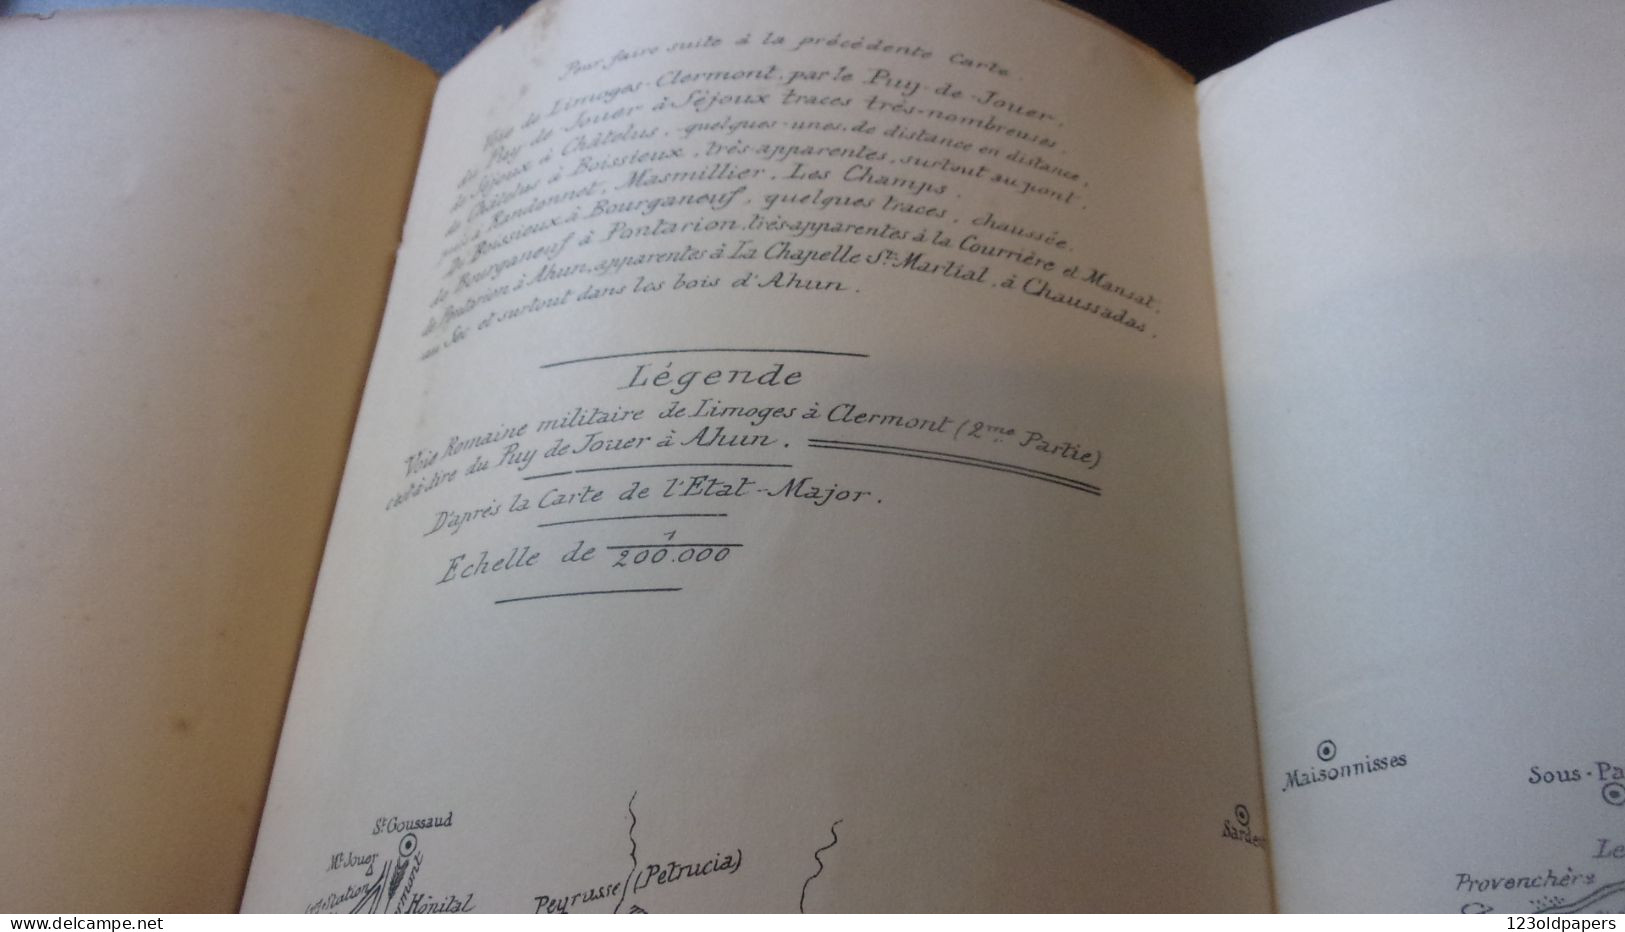 Pour faire suite à la précédente Carte.
Voie de Limoges-Clermont, par le Puy-de-Jouer.
du Puy-de-Jouer à Séjoux traces très-nombreuses,
de Séjoux à Châtelus, quelques-unes, de distance en distance,
de Châtelus à Boissieux, très-apparentes, surtout au pont,
puis à Randonnet, Masmillier, Les Champs.
De Boissieux à Bourganeuf, quelques traces, chaussée.
de Bourganeuf à Pontarion, très-apparentes à la Courrière et Mansat.
de Pontarion à Ahun, apparentes à La Chapelle St. Martial, à Chaussadas,
au Sec et surtout dans les bois d'Ahun.
Légende
Voie Romaine militaire de Limoges à Clermont (2me Partie)
c'est-à-dire du Puy de Jouer à Ahun.
D'après la Carte de l'Etat-Major.
Echelle de 1/200.000
Maisonnisses
Sous-Pa
Sarde
St Goussaud
Mt Jouer
Station
Hôpital
Peyrusse (Petrucia)
Le
Provenchère
delcampe.net
123oldpapers